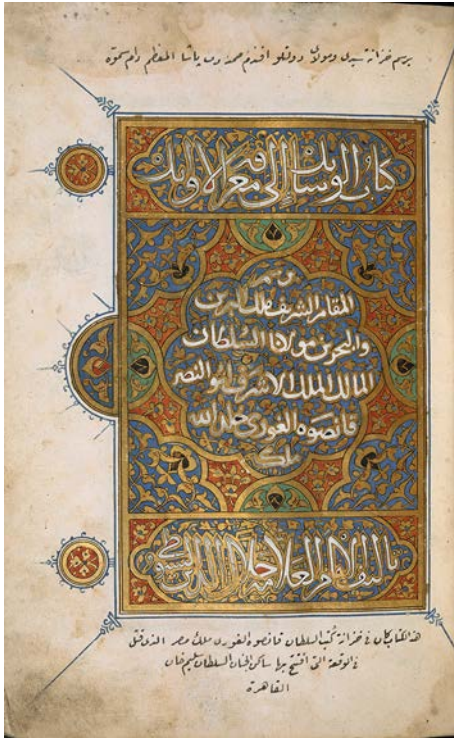 برسم خزانة سيدى ومولاى دولتلو افندم محمد باشا المعظم دام سموه
كتاب الوسائل إلى معرفة الاوائل
برسم
المقام الشريف ملك البرين
والبحرين مولانا السلطان
المالك الملك الاشرف ابو النصر
قانصوه الغورى خلد الله
ملكه
تاليف الامام العلامة جلال الدين السيوطى
هذا الكتاب كان فى خزانة كتب السلطان قانصو الغورى ملك مصر الذى قتل
فى الوقعة التى افتتح بها ساكن الجنان السلطان سليم خان
القاهرة